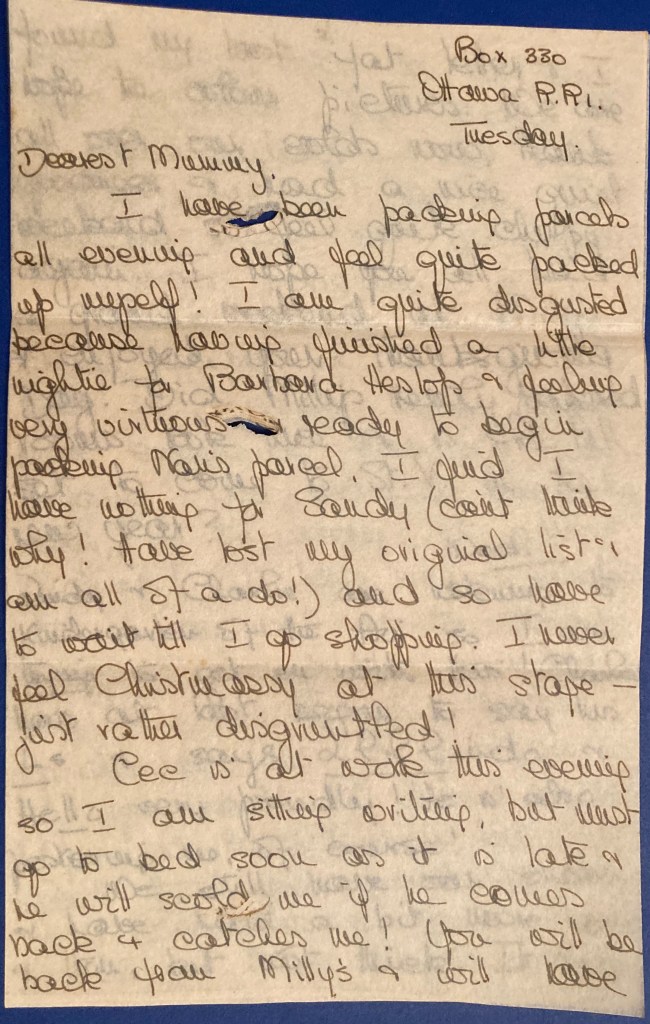 Box 330
Ottawa R.R.1.
Tuesday.
Dearest Mummy,
I have been packing parcels
all evening and feel quite packed
up myself! I am quite disgusted
because having finished a little
nightie for Barbara Heslop & feeling
very virtuous ready to begin
packing Nan's parcel, I find I
have nothing for Sandy (can't think
why! Have lost my original list &
am all of a do!) and so have
to wait till I go shopping. I never
feel Christmassy at this stage —
just rather disgruntled!
Cec is at work this evening
so I am sitting writing, but must
go to bed soon as it is late &
he will scold me if he comes
back & catches me! You will be
back from Milly's & will have